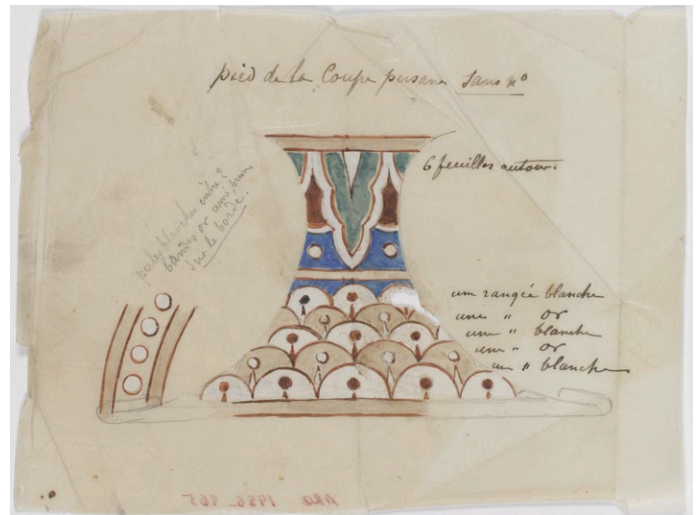 pied de la Coupe persane sans nº
6 feuilles autour.
perles blanches entre 2
bandes or uni, brun
sur le bord.
une rangée blanche
une " or
une " blanche
une " or
une " blanche
ARO 1986.965